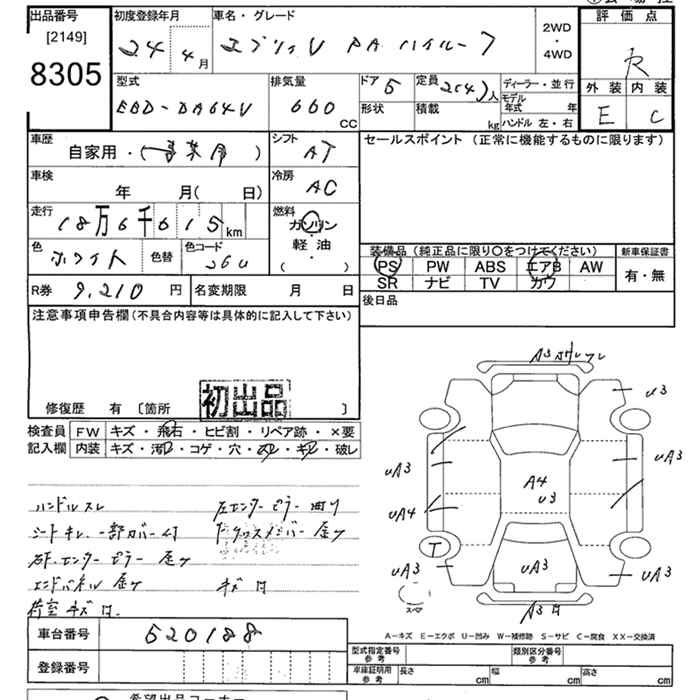 出品番号 初度登録年月 車名・グレード 評価点
[2149] 24年4月 エブリィV PA ハイルーフ 2WD・4WD R
8305 型式 排気量 ドア 5 定員 2(4)人 ディーラー・並行 外装 内装
EBD-DA64V 660 CC 形状 積載 kg モデル年式 年 ハンドル 左・右 E C
車歴 自家用・(事業用) シフト AT セールスポイント (正常に機能するものに限ります)
車検 年 月(日) 冷房 AC
走行 18万6千615km 燃料 ガソリン・軽油・( )
色 ホワイト 色替 色コード 26U 装備品 (純品に限り〇をつけてください) 新車保証書
PS PW ABS エアB AW 有・無
SR ナビ TV カワ
R券 9,210円 名変期限 月 日 後日品
注意事項申告欄 (不具合内容等は具体的に記入して下さい)
修復歴 有 [箇所 ]
初出品
検査員 FW キズ・飛石・ヒビ割・リペア跡・×要
記入欄 内装 キズ・汚れ・コゲ・穴・破レ
A3 U3
UA3 UA3
UA4 A4 U3
T UA3 UA3 UA3
スペア A3
ハンドルスレ 左センターピラー曲り
シートキレ、一部カバー付 F・クロスメンバー歪ケ
右F、センターピラー歪ケ
エンドパネル歪ケ キズ凹
荷室キズ凹
A-キズ E-エクボ U-凹み W-補修跡 S-サビ C-腐食 XX-交換済
車台番号 520188
登録番号
型式指定番号 参考 類別区分番号 参考
車庫証明用 参考 長さ cm 幅 cm 高さ cm
希望出品コーナー